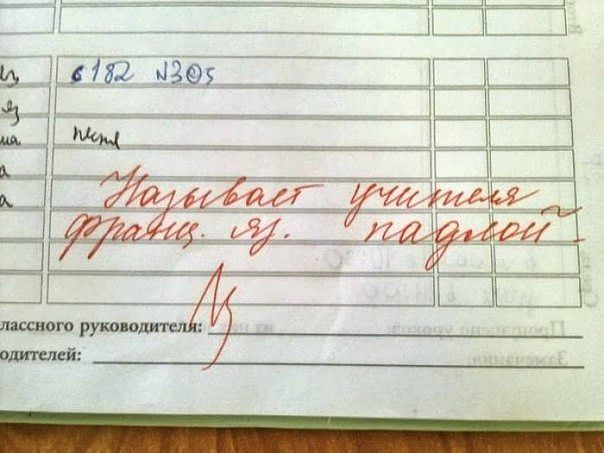 с 182 N305
яз
ма
песня
а
Называет учителя
а
франц. яз. падлой.
лассного руководителя:
одителей: